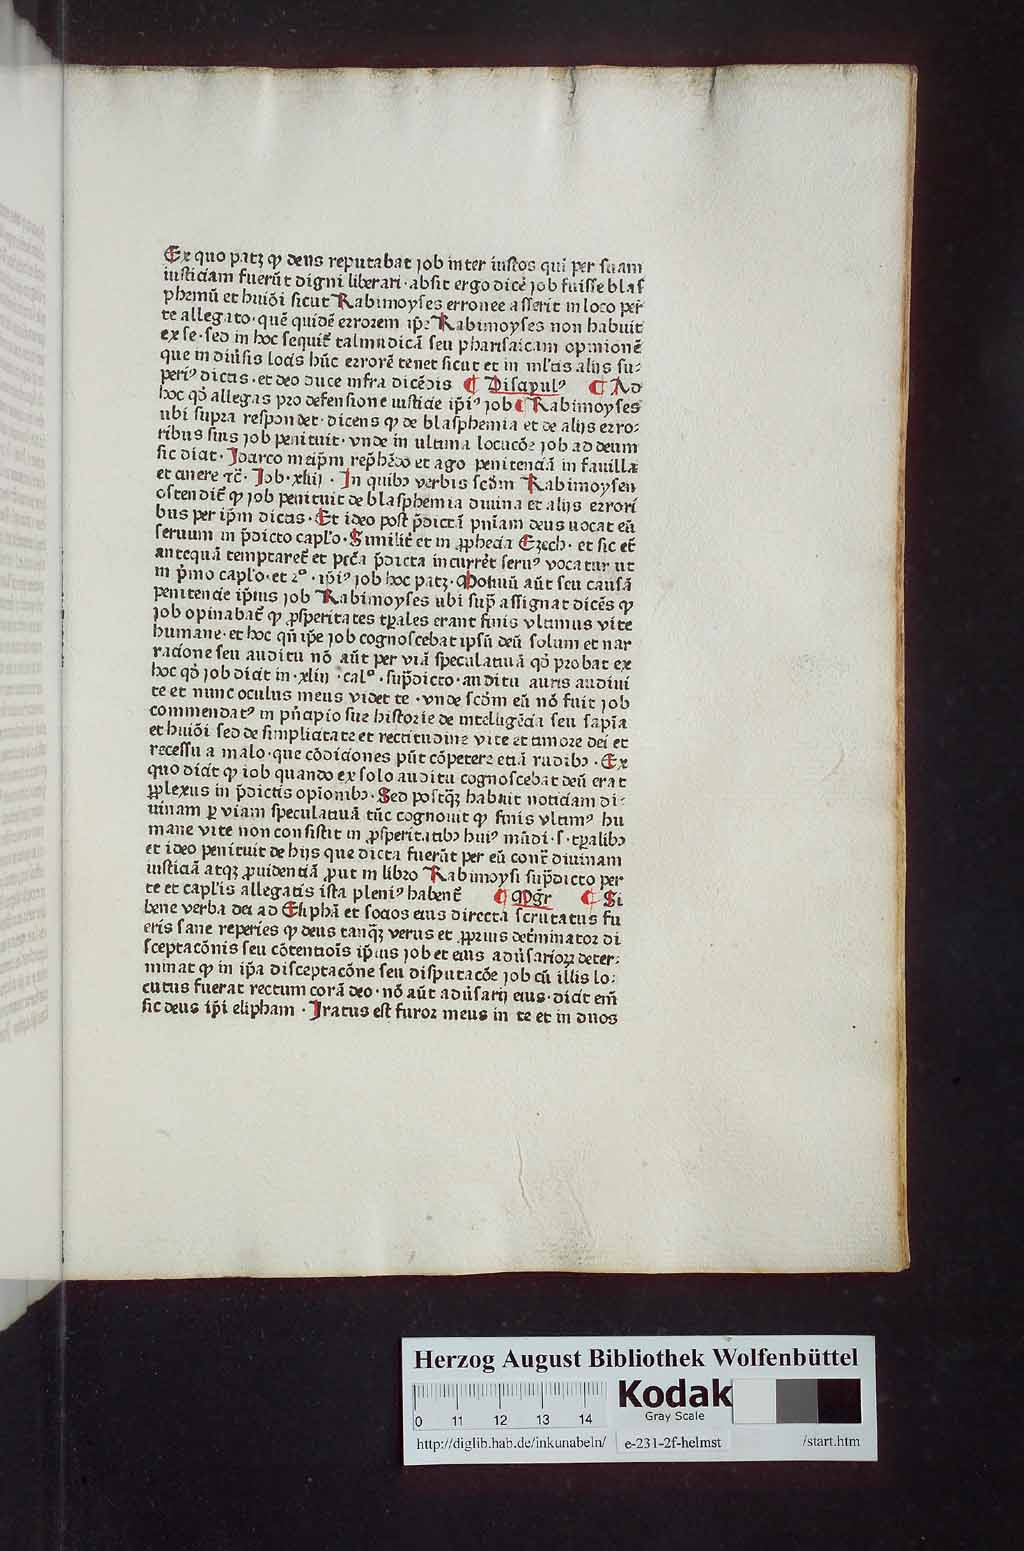 Ex quo patꝫ ꝙ deus reputabat job inter iustos qui per suam
iusticiam fuerūt digni liberari · absit ergo dicē job fuisse blas
phemū et huiōi sicut Rabimoyses erronee asserit in loco per
te allegato · quē quidē errorem ip̄e Rabimoyses non habuit
ex se · sed in hoc sequit̄ talmudicā seu pharisaicam opinionē
que in diūsis locis hūc errorē tenet sicut et in ml̄tis alijs su⸗
periꝰ dictis · et deo duce infra dicēdis ¶ Discipulꝰ ¶ Ad
hoc qd̄ allegas pro defensione iusticie ip̄iꝰ job ¶ Rabimoyses
ubi supra respondet · dicens ꝙ de blasphemia et de alijs erro⸗
ribus suis job penituit · vnde in ultima locucōe job ad deum
sic dicit · Jdarco meip̄m rep̄hēdo et ago penitenciā in fauilla
et cinere ꝛc̄ · Job · xliij · In quibꝫ verbis scd̄m Rabimoysen
ostendit̄ ꝙ job penituit de blasphemia diuina et alijs errori
bus per ip̄m dictis · Et ideo post p̄dictā pn̄iam deus uocat eū
seruum in p̄dicto capl̄o · Similit̄ et in ꝓphecia Ezech · et sic et̄
antequā temptaret̄ et pctā p̄dicta incurret̄ seruꝰ vocatur ut
in p̄mo capl̄o · et 2° · ip̄iꝰ job hoc patꝫ · Motiuū aūt seu causā
penitencie ip̄ius job Rabimoyses ubi sup̄ assignat dicēs ꝙ
job opinabat̄ ꝙ ꝓsperitates tꝑales erant finis vltimus vite
humane · et hoc qn̄ ip̄e job cognoscebat ipsū deū solum et nar
racione seu auditu nō aūt per viā speculatiuā qd̄ probat ex
hoc qd̄ job dicit in · xliij · cal° · sup̄dicto · auditu auris audiui
te et nunc oculus meus videt te · vnde scd̄m eū nō fuit job
commendatꝰ in pn̄cipio sue historie de intelligēcia seu sapīa
et huiōi sed de simplicitate et rectitudine vite et timore dei et
recessu a malo · que cōdiciones pn̄t cōpetere etiā rudibꝫ · Ex
quo dicit ꝙ iob quando ex solo auditu cognoscebat deū erat
ꝑplexus in p̄dictis opīonibꝫ · Sed postꝙ̄ habuit noticiam di⸗
uinam ꝑ viam speculatiuā tūc cognouit ꝙ finis vltimꝰ hu
mane vite non consistit in ꝓsperitatibꝫ huiꝰ mūdi · s · tꝑalibꝫ
et ideo penituit de hijs que dicta fuerūt per eū cont̄ diuinam
iusticiā atqꝫ ꝓuidenciā ꝓut in libro Rabimoysi sup̄dicto per
te et capl̄is allegatis ista pleniꝰ habent̄ ¶ Mḡr ¶ Si
bene verba dei ad Eliphā et socios eius directa scrutatus fu
eris sane reperies ꝙ deus tanꝙ̄ verus et ꝓprius det̄minator di
sceptacōnis seu cōtentiois ip̄ius job et eius adūsarioꝝ deter⸗
minat ꝙ in ip̄a disceptacōne seu disputacōe job cū illis lo⸗
cutus fuerat rectum corā deo · nō aūt adūsarij eius · dicit em̄
sic deus ip̄i elipham · Iratus est furor meus in te et in duos
Herzog August Bibliothek Wolfenbüttel
0 11 12 13 14
Kodak
Gray Scale
http://diglib.hab.de/inkunabeln/ e-231-2f-helmst /start.htm